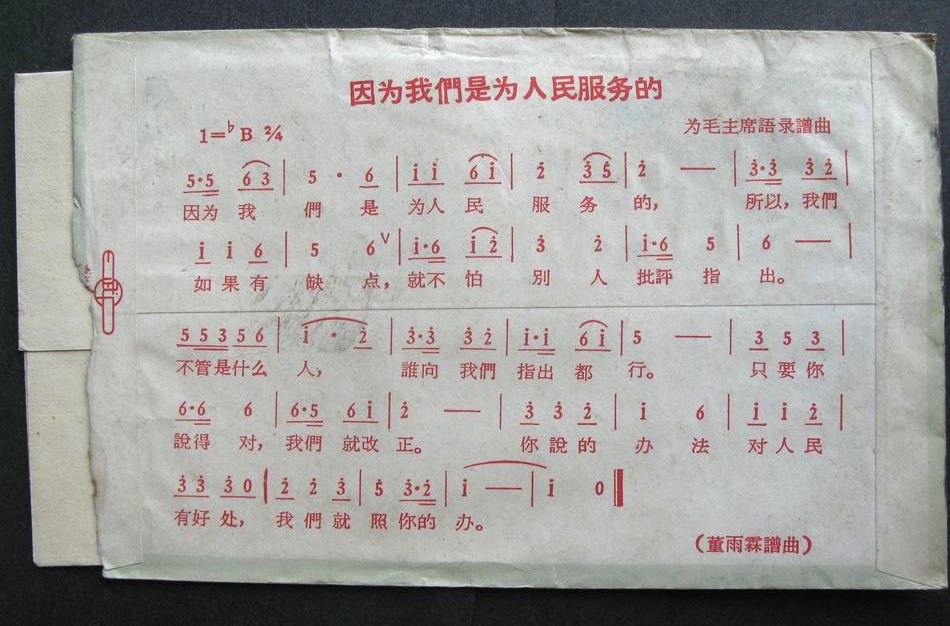 因为我們是为人民服务的
1=♭B 2/4
为毛主席語录譜曲
5·5 6 3 | 5 · 6 | i i 6 i | 2̇ 3̇ 5̇ | 2̇ — | 3̇·3̇ 3̇ 2̇ |
因为 我 們 是 为人 民 服 务 的， 所以，我們
i i 6 | 5 6 V | i·6 i 2̇ | 3̇ 2̇ | i·6 5 | 6 — |
如 果 有 缺 点，就不 怕 別 人 批評 指 出。
5 5 3 5 6 | i · 2̇ | 3̇·3̇ 3̇ 2̇ | i·i 6 i | 5 — | 3 5 3 |
不管是什么 人， 誰向 我們 指出 都 行。 只 要 你
6·6 6 | 6·5 6 i | 2̇ — | 3̇ 3̇ 2̇ | i 6 | i i 2̇ |
說得 对，我們 就改 正。 你 說 的 办 法 对 人 民
3̇ 3̇ 3̇ 0 | 2̇ 2̇ 3̇ | 5̇ 3̇·2̇ | i — | i 0 ‖
有好 处， 我 們 就 照 你的 办。
（董雨霖譜曲）